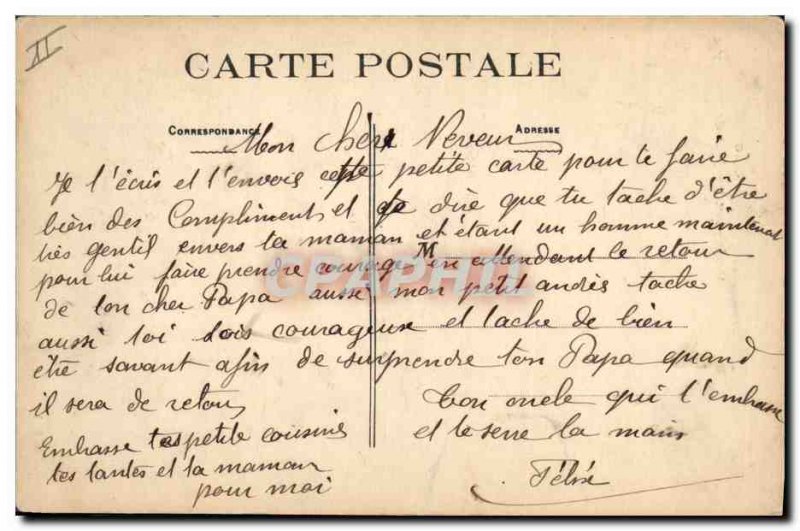 II
CARTE POSTALE
CORRESPONDANCE
ADRESSE
Mon cher Neveux
Je t'écris et t'envois cette petite carte pour te faire
bien des Compliments et te dire que tu tache d'être
très gentil envers ta maman et étant un homme maintenant
M
pour lui faire prendre courage en attendant le retour
de ton cher Papa aussi mon petit andrès tache
aussi toi sois courageux et tache de bien
être savant afin de surprendre ton Papa quand
il sera de retour
ton oncle qui t'embrasse
et te serre la main
Félix
Embrasse tes petite cousines
tes tantes et ta maman
pour moi
CPAPHIL